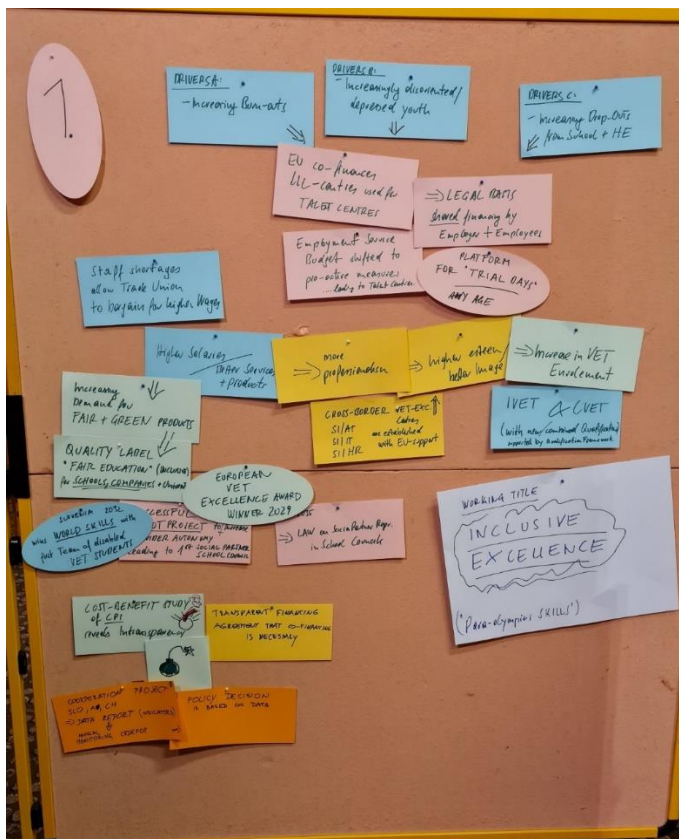 1.
DRIVERS A:
- Increasing Burn-outs
DRIVERS B:
- Increasingly disoriented/
depressed youth
DRIVERS C:
- Increasing Drop-Outs
from School + HE
EU co-finances
LLL-centres used for
TALET CENTRES
⇒ LEGAL BASIS
shared financing by
Employer + Employees
Employment Service
Budget shifted to
pro-active measures
...leading to Talent Centres
PLATFORM
FOR "TRIAL DAYS"
ANY AGE
Staff shortages
allow Trade Union
to bargain for higher Wages
Higher Salaries
Better Services
+ Products
⇒ more
professionalism
⇒ higher esteem/
better Image
⇒ Increase in VET
Enrolement
Increasing
Demand for
FAIR + GREEN PRODUCTS
CROSS-BORDER VET-EXC.
Centres
SI/AT
SI/IT are established
SI/HR with EU-support
IVET & CVET
(with new/combined Qualification)
supported by Qualification Framework
QUALITY "LABEL"
"FAIR EDUCATION" (inclusive)
for SCHOOLS, COMPANIES +
EUROPEAN
VET
EXCELLENCE AWARD
WINNER 2029
SLOVENIA 2032
wins WORLD SKILLS with
first Team of disabled
VET STUDENTS
PROJECT to
AUTONOMY
leading to 1st SOCIAL PARTNER
SCHOOL COUNCIL
⇒ LAW on Social Partner Repr.
in School Councils
WORKING TITLE
INCLUSIVE
EXCELLENCE
("Para-olympics SKILLS")
COST-BENEFIT STUDY
of CPI
reveals Intransparency
TRANSPARENT FINANCING
AGREEMENT THAT CO-FINANCING
IS NECESSARY
COOPERATION PROJECT
SLO, AT, CH
⇒ DATA REPORT (INDICATORS)
&
ANNUAL
MONITORING
POLICY DECISION
IS BASED ON DATA